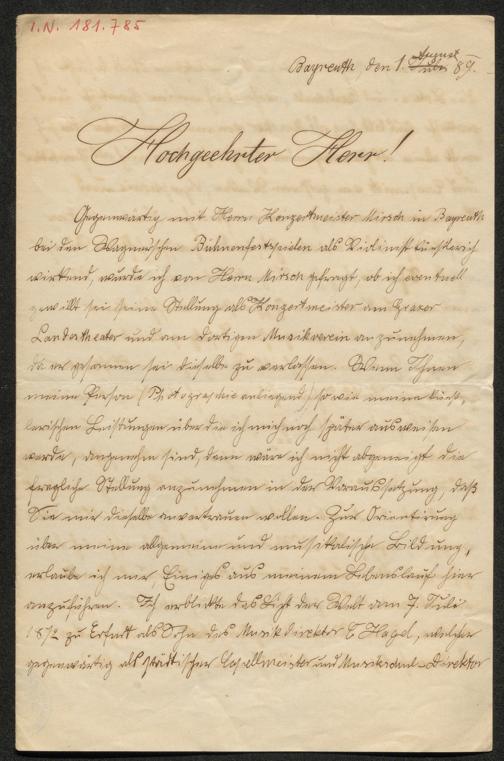 I.N. 181.785
Bayreuth, den 1. August 89.
Hochgeehrter Herr!
Gegenwärtig mit Herrn Konzertmeister Mirsch in Bayreuth
bei den Wagner'schen Bühnenfestspielen als Violinist künstlerisch
wirkend, wurde ich von Herrn Mirsch gefragt, ob ich eventuell
gewillt sei seine Stellung als Konzertmeister am Grazer
Landestheater und am dortigen Musikverein anzunehmen,
da er gesonnen sei dieselbe zu verlassen. Wenn Ihnen
meine Person (Photographie anliegend), sowie meine künst-
lerischen Leistungen über die ich mich noch später ausweisen
werde, angenehm sind, dann wäre ich nicht abgeneigt die
fragliche Stellung anzunehmen in der Voraussetzung, daß
Sie mir dieselbe anvertrauen wollen. Zur Orientirung
über meine allgemeine und musikalische Bildung,
erlaube ich mir Einiges aus meinem Lebenslauf hier
anzuführen. Ich erblickte das Licht der Welt am 7. Juli
zu Erfurt als Sohn des Musikdirektor C Hagel, welcher
gegenwärtig als städtischer Capellmeister und Musikschul-Direktor